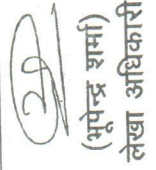 (भूपेन्द्र शर्मा)
लेखा अधिकारी